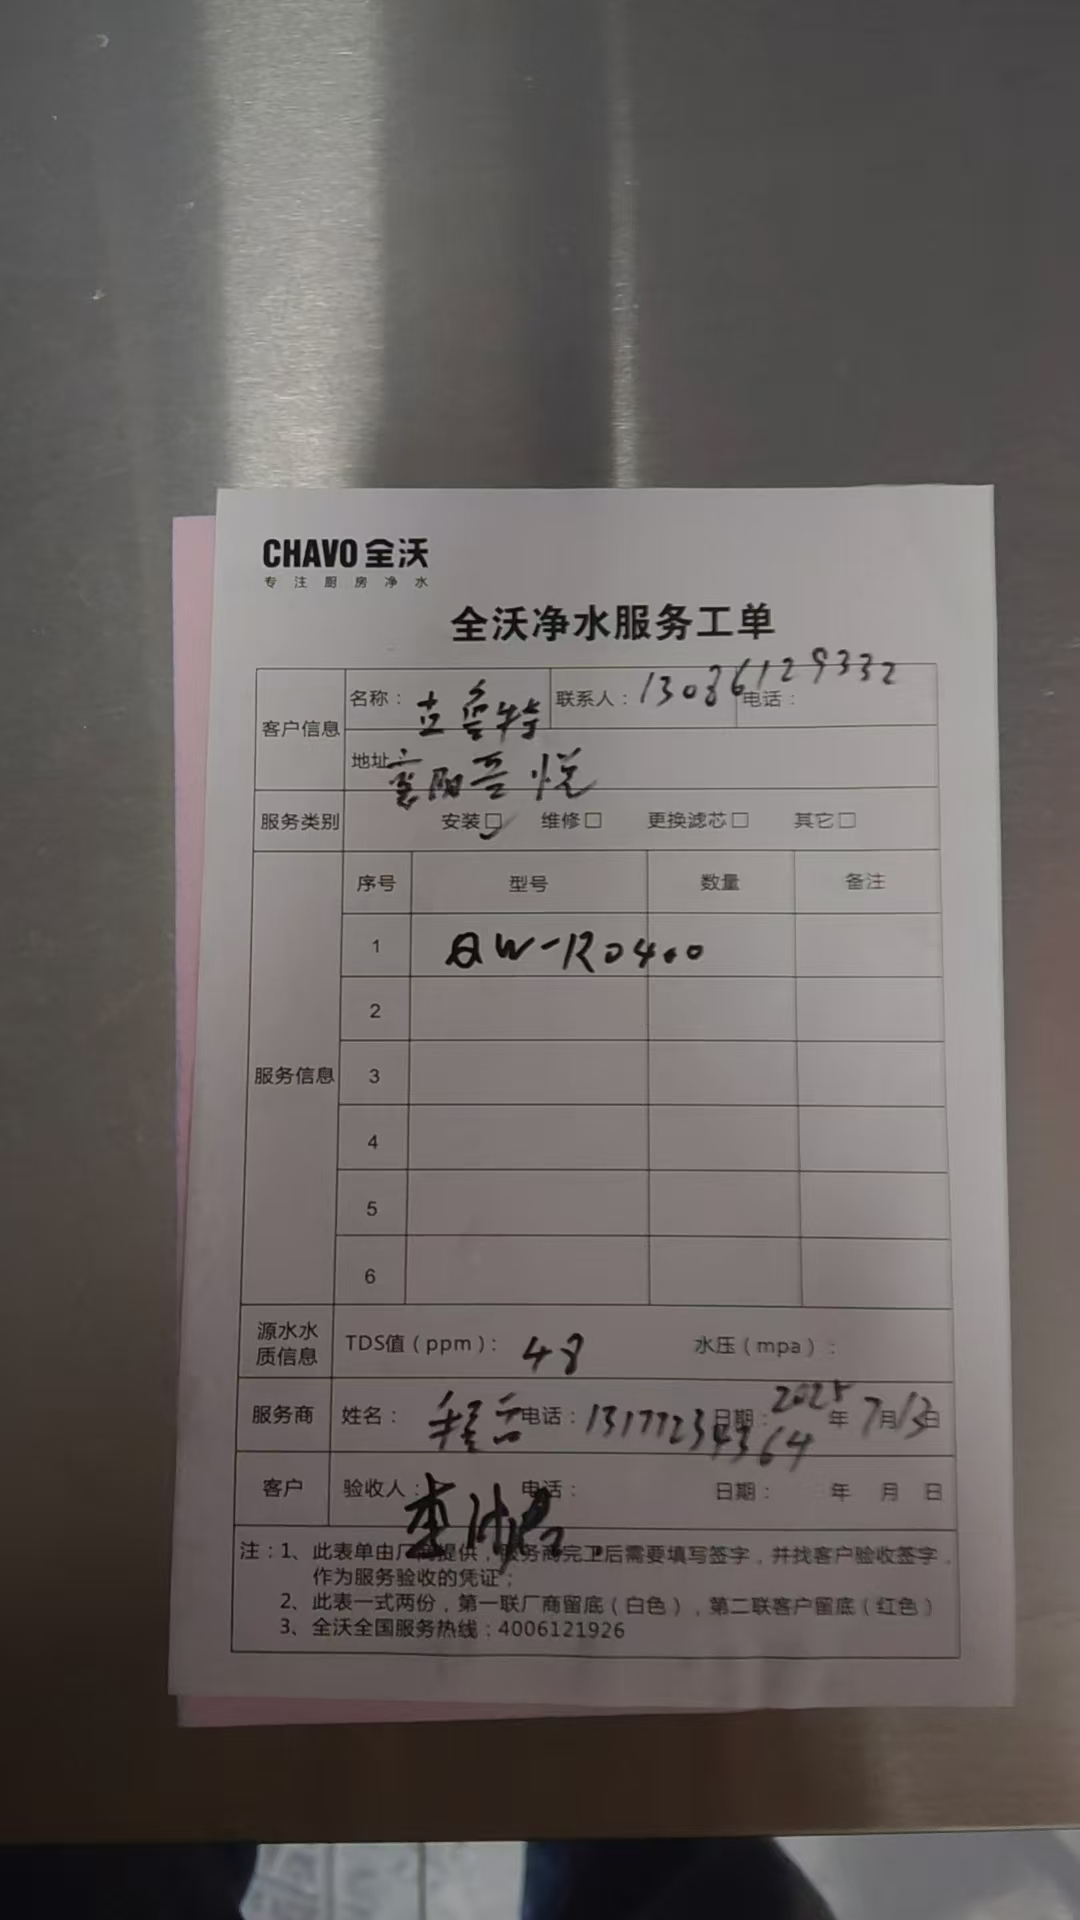 CHAVO 全沃
专注厨房净水
全沃净水服务工单
客户信息 名称： 联系人：13086129332 电话：
地址 襄阳吾悦
服务类别 安装☑ 维修□ 更换滤芯□ 其它□
服务信息 序号 型号 数量 备注
1 QW-RO400
2
3
4
5
6
源水水质信息 TDS值（ppm）：48 水压（mpa）：
服务商 姓名：程 电话：13177234364 日期：2025年7月13日
客户 验收人：李 电话： 日期： 年 月 日
注：1、此表单由厂商提供，服务商完工后需要填写签字，并找客户验收签字，
作为服务验收的凭证；
2、此表一式两份，第一联厂商留底（白色），第二联客户留底（红色）
3、全沃全国服务热线：4006121926